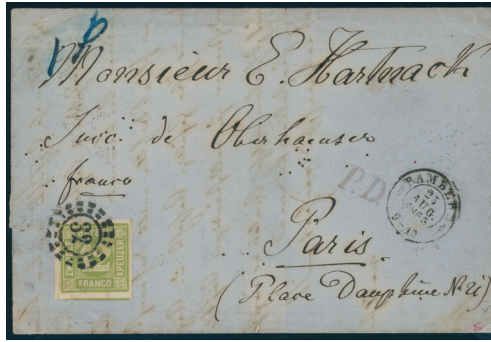 Monsieur E. Hartnack
Succ. de Oberhaeuser
franco
P.D.
BAMBERG
25
AUG.
Paris
(Place Dauphine No. 21)
ZWÖLF
KREUZER
FRANCO